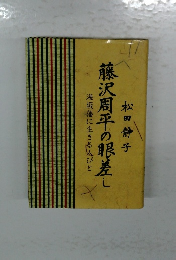 藤沢周平の眼差し
海坂藩に生きる人びと
松田静子